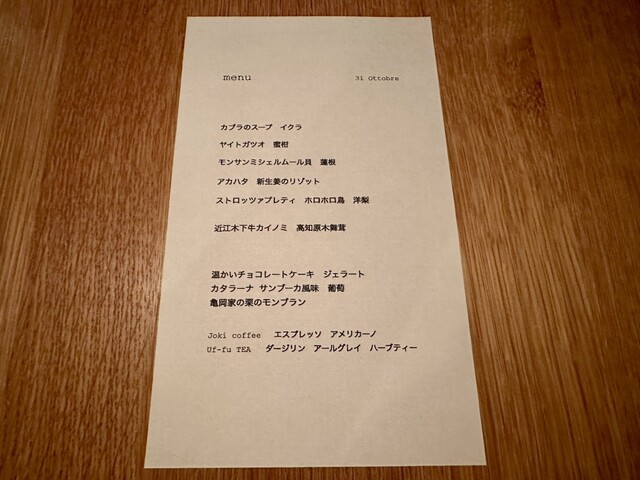 menu 31 Ottobre
カブラのスープ イクラ
ヤイトガツオ 蜜柑
モンサンミシェルムール貝 蓮根
アカハタ 新生姜のリゾット
ストロッツァプレティ ホロホロ鳥 洋梨
近江木下牛カイノミ 高知原木舞茸
温かいチョコレートケーキ ジェラート
カタラーナ サンブーカ風味 葡萄
亀岡家の栗のモンブラン
Joki coffee エスプレッソ アメリカーノ
Uf-fu TEA ダージリン アールグレイ ハーブティー